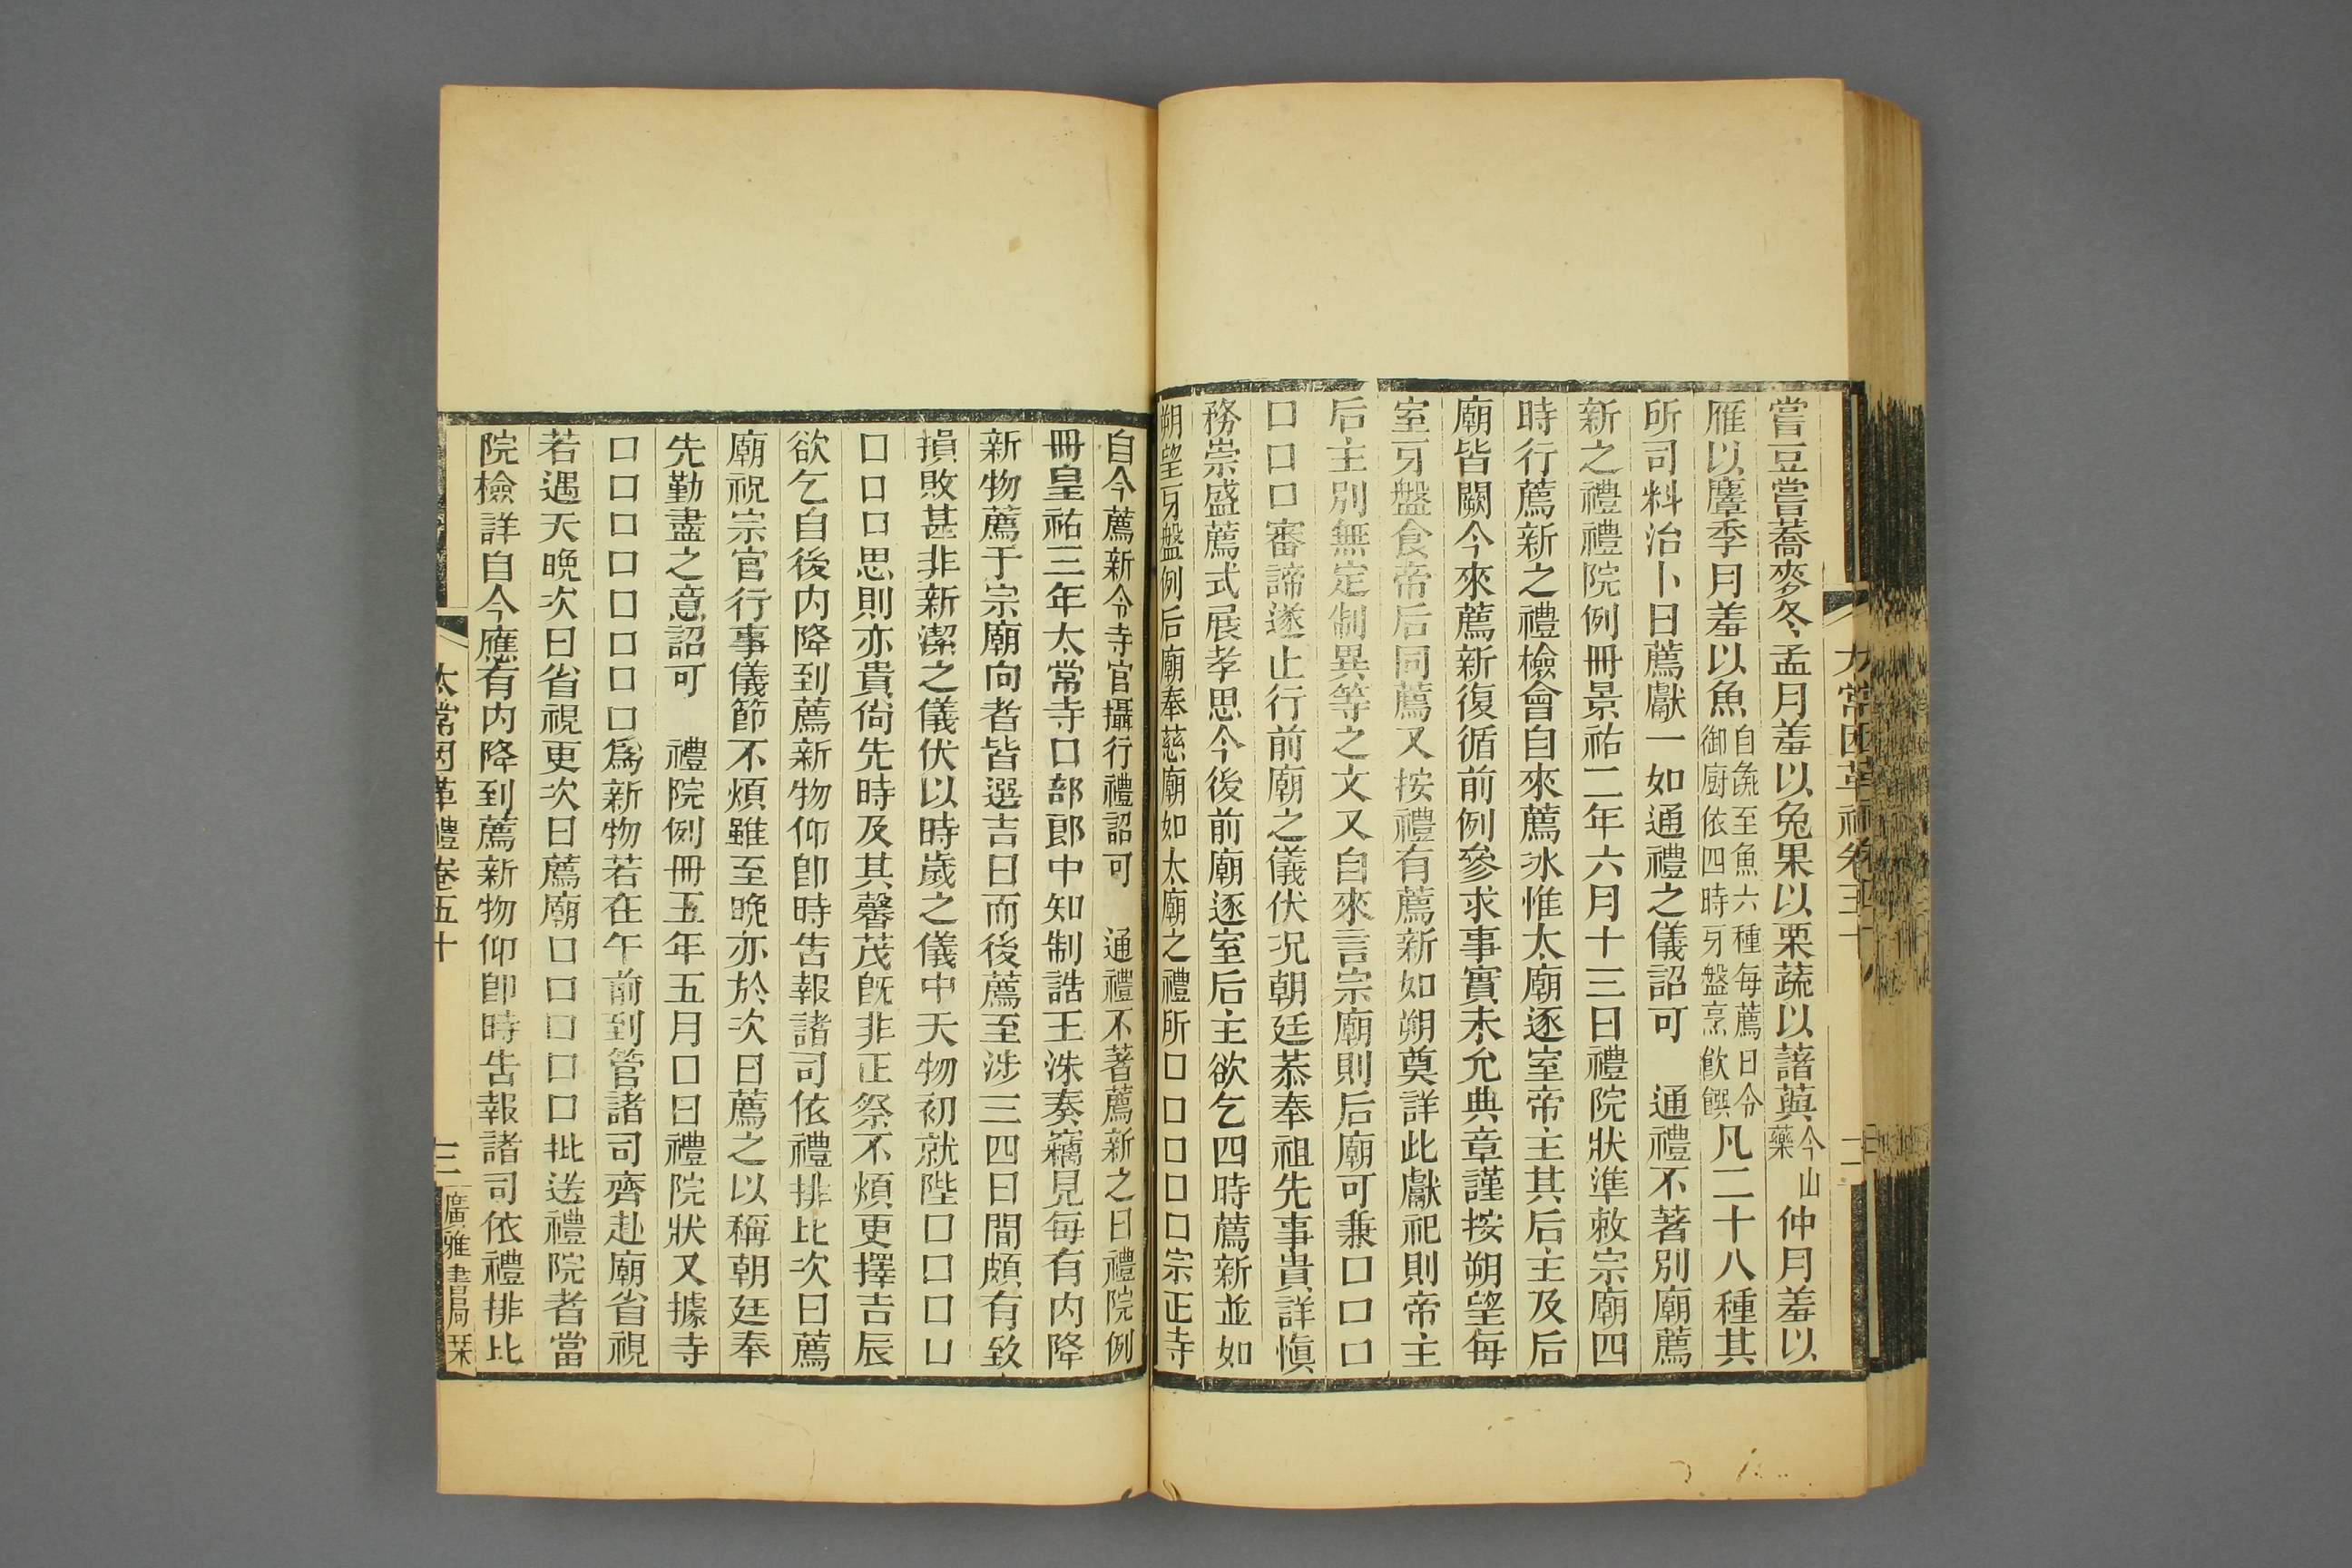 嘗豆嘗蕎麥冬孟月羞以兔果以栗蔬以藷藇今山藥仲月羞以
雁以麞季月羞以魚自彘至魚六種每薦日令御廚依四時牙盤烹飪饌凡二十八種其
所司料治卜日薦獻一如通禮之儀詔可　通禮不著別廟薦
新之禮禮院例冊景祐二年六月十三日禮院狀準敕宗廟四
時行薦新之禮檢會自來薦冰惟太廟逐室帝主其后主及后
廟皆闕今來薦新復循前例參求事實未允典章謹按朔望每
室牙盤食帝后同薦又按禮有薦新如朔奠詳此獻祀則帝主
后主別無定制異等之文又自來言宗廟則后廟可兼口口口
口口口審諦遂止行前廟之儀伏況朝廷恭奉祖先事貴詳愼
務崇盛薦式展孝思今後前廟逐室后主欲乞四時薦新並如
朔望牙盤例后廟奉慈廟如太廟之禮所口口口口口宗正寺
自今薦新令寺官攝行禮詔可　通禮不著薦新之日禮院例
冊皇祐三年太常寺口部郎中知制誥王洙奏竊見每有內降
新物薦于宗廟向者皆選吉日而後薦至涉三四日間頗有致
損敗甚非新潔之儀伏以時歲之儀中天物初就陛口口口口
口口口思則亦貴尙先時及其馨茂旣非正祭不煩更擇吉辰
欲乞自後內降到薦新物仰卽時吿報諸司依禮排比次日薦
廟祝宗官行事儀節不煩雖至晚亦於次日薦之以稱朝廷奉
先勤盡之意詔可　禮院例冊五年五月口日禮院狀又據寺
口口口口口口口口爲新物若在午前到管諸司齊赴廟省視
若遇天晚次日省視更次日薦廟口口口口口批送禮院者當
院檢詳自今應有內降到薦新物仰卽時吿報諸司依禮排比
太常因革禮卷五十　三　廣雅書局栞